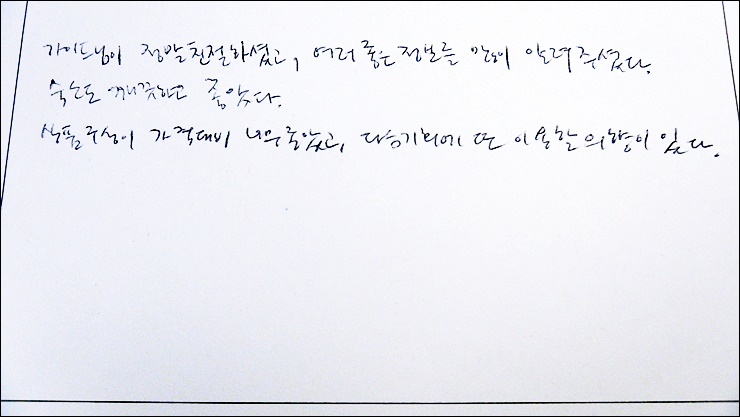 가이드님이 정말 친절하셨고, 여러 좋은 정보를 많이 알려주셨다.
숙소도 깨끗하고 좋았다.
상품구성이 가격대비 너무 좋았고, 다음기회에 또 이용할 의향이 있다.